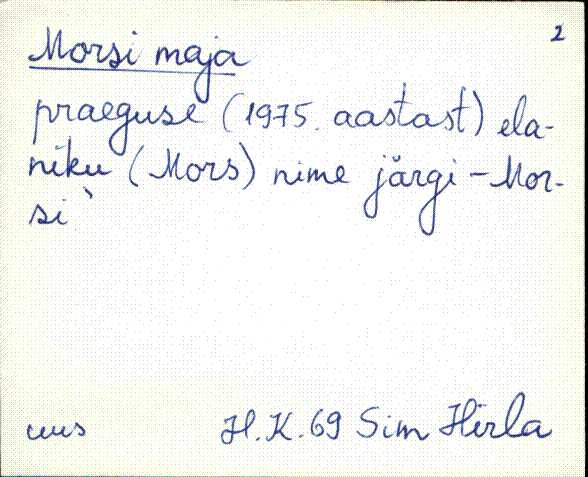 2
Morsi maja
praeguse (1975. aastast) ela-
niku (Mors) nime järgi - Mor-
si`
uus H.K. 69 Sim Hirla